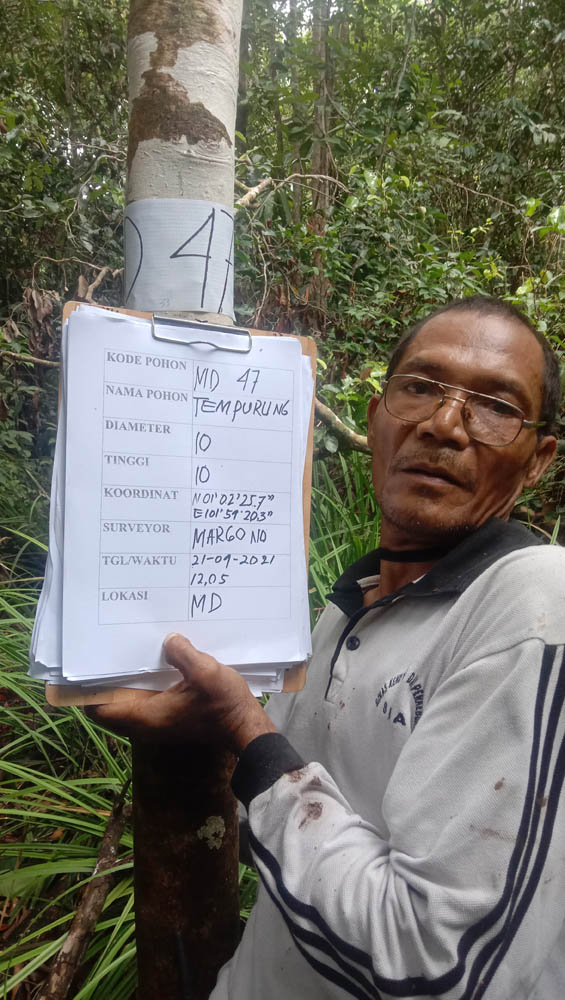 D 47
KODE POHON MD 47
NAMA POHON TEMPURUNG
DIAMETER 10
TINGGI 10
KOORDINAT N 01°02'25.7"
E101°59'20.3"
SURVEYOR MARGONO
TGL/WAKTU 21-09-2021
12,05
LOKASI MD